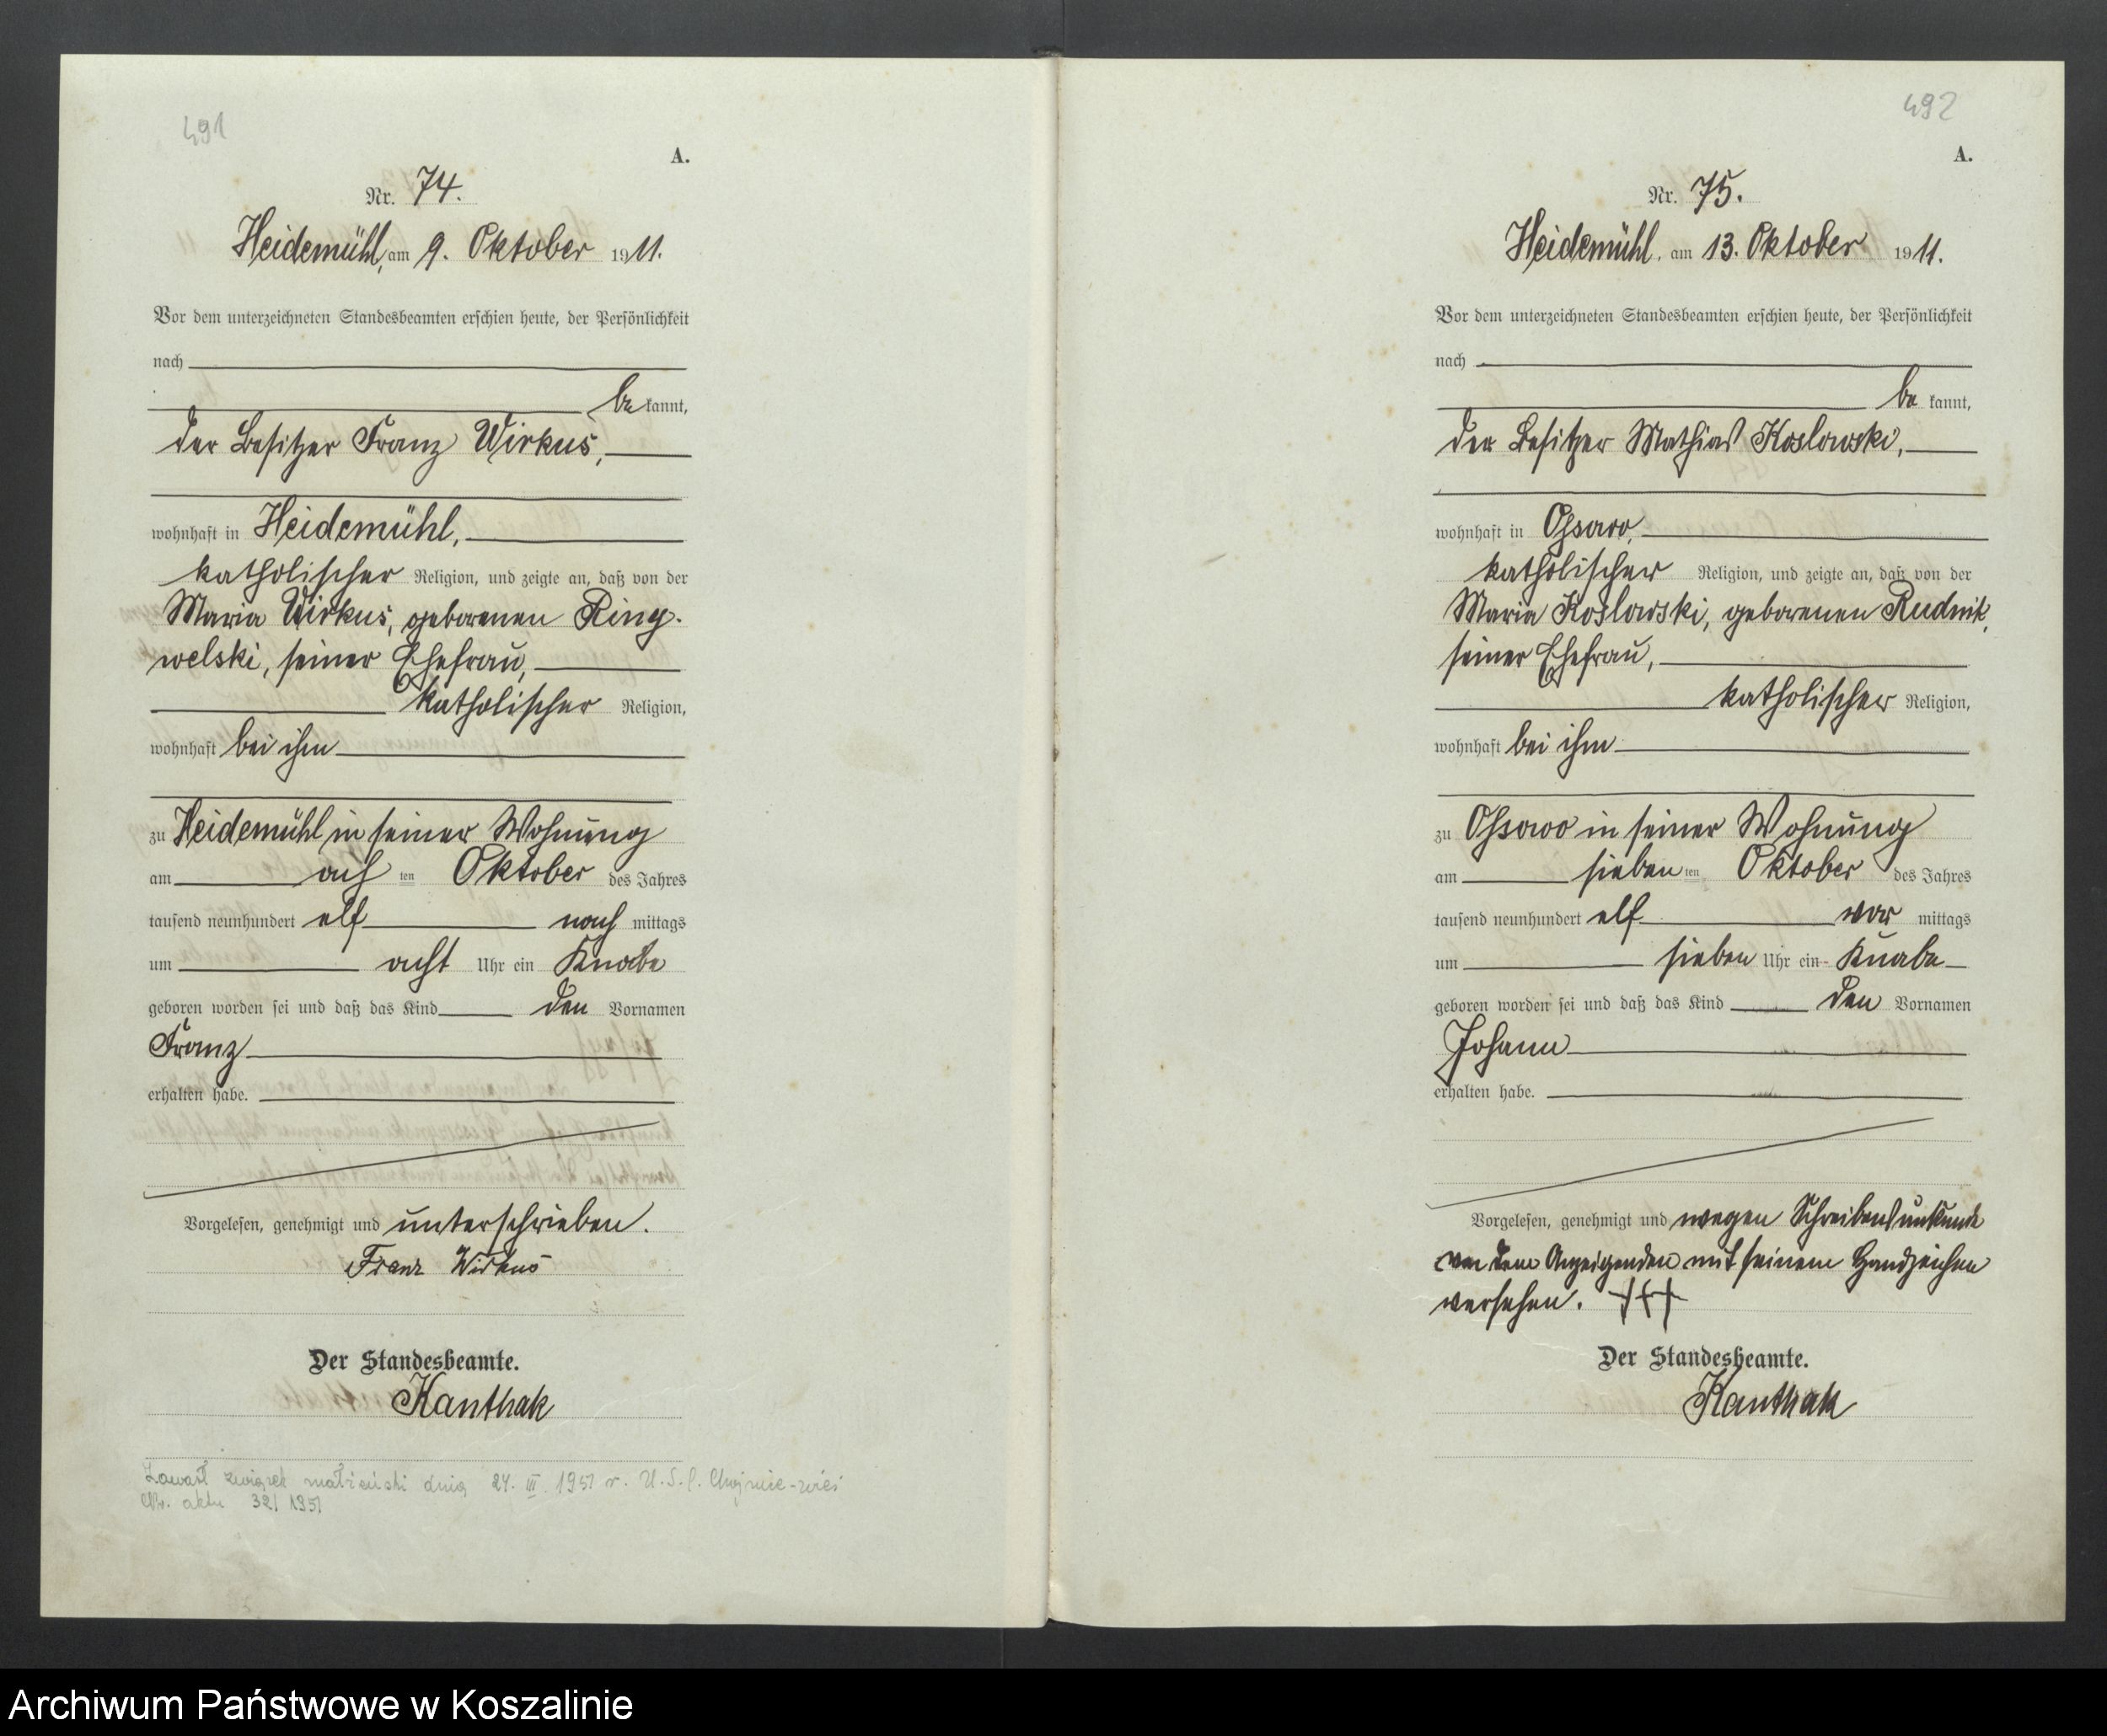 491
A.
Nr. 74.
Heidemühl, am 9. Oktober 1911.
Vor dem unterzeichneten Standesbeamten erschien heute, der Persönlichkeit
nach
be kannt,
der Besitzer Franz Wirkus,
wohnhaft in Heidemühl,
katholischer Religion, und zeigte an, daß von der
Maria Wirkus, geborenen Ring-
welski, seiner Ehefrau,
katholischer Religion,
wohnhaft bei ihm
zu Heidemühl in seiner Wohnung
am ach ten Oktober des Jahres
tausend neunhundert elf nach mittags
um acht Uhr ein Knabe
geboren worden sei und daß das Kind den Vornamen
Franz
erhalten habe.
Vorgelesen, genehmigt und unterschrieben.
Franz Wirkus
Der Standesbeamte.
Kanthak
Zawarł związek małżeński dnia 24. III. 1951 r. U.S.C. Chojnice-wieś
Nr. aktu 32/1951
492
A.
Nr. 75.
Heidemühl, am 13. Oktober 1911.
Vor dem unterzeichneten Standesbeamten erschien heute, der Persönlichkeit
nach
be kannt,
der Besitzer Mathias Koslowski,
wohnhaft in Ossowo,
katholischer Religion, und zeigte an, daß von der
Maria Koslowski, geborenen Rudnik,
seiner Ehefrau,
katholischer Religion,
wohnhaft bei ihm
zu Ossowo in seiner Wohnung
am sieben ten Oktober des Jahres
tausend neunhundert elf vor mittags
um sieben Uhr ein Knabe
geboren worden sei und daß das Kind den Vornamen
Johann
erhalten habe.
Vorgelesen, genehmigt und wegen Schreibensunkunde
von dem Anzeigenden mit seinem Handzeichen
versehen. +++
Der Standesbeamte.
Kanthak
Archiwum Państwowe w Koszalinie